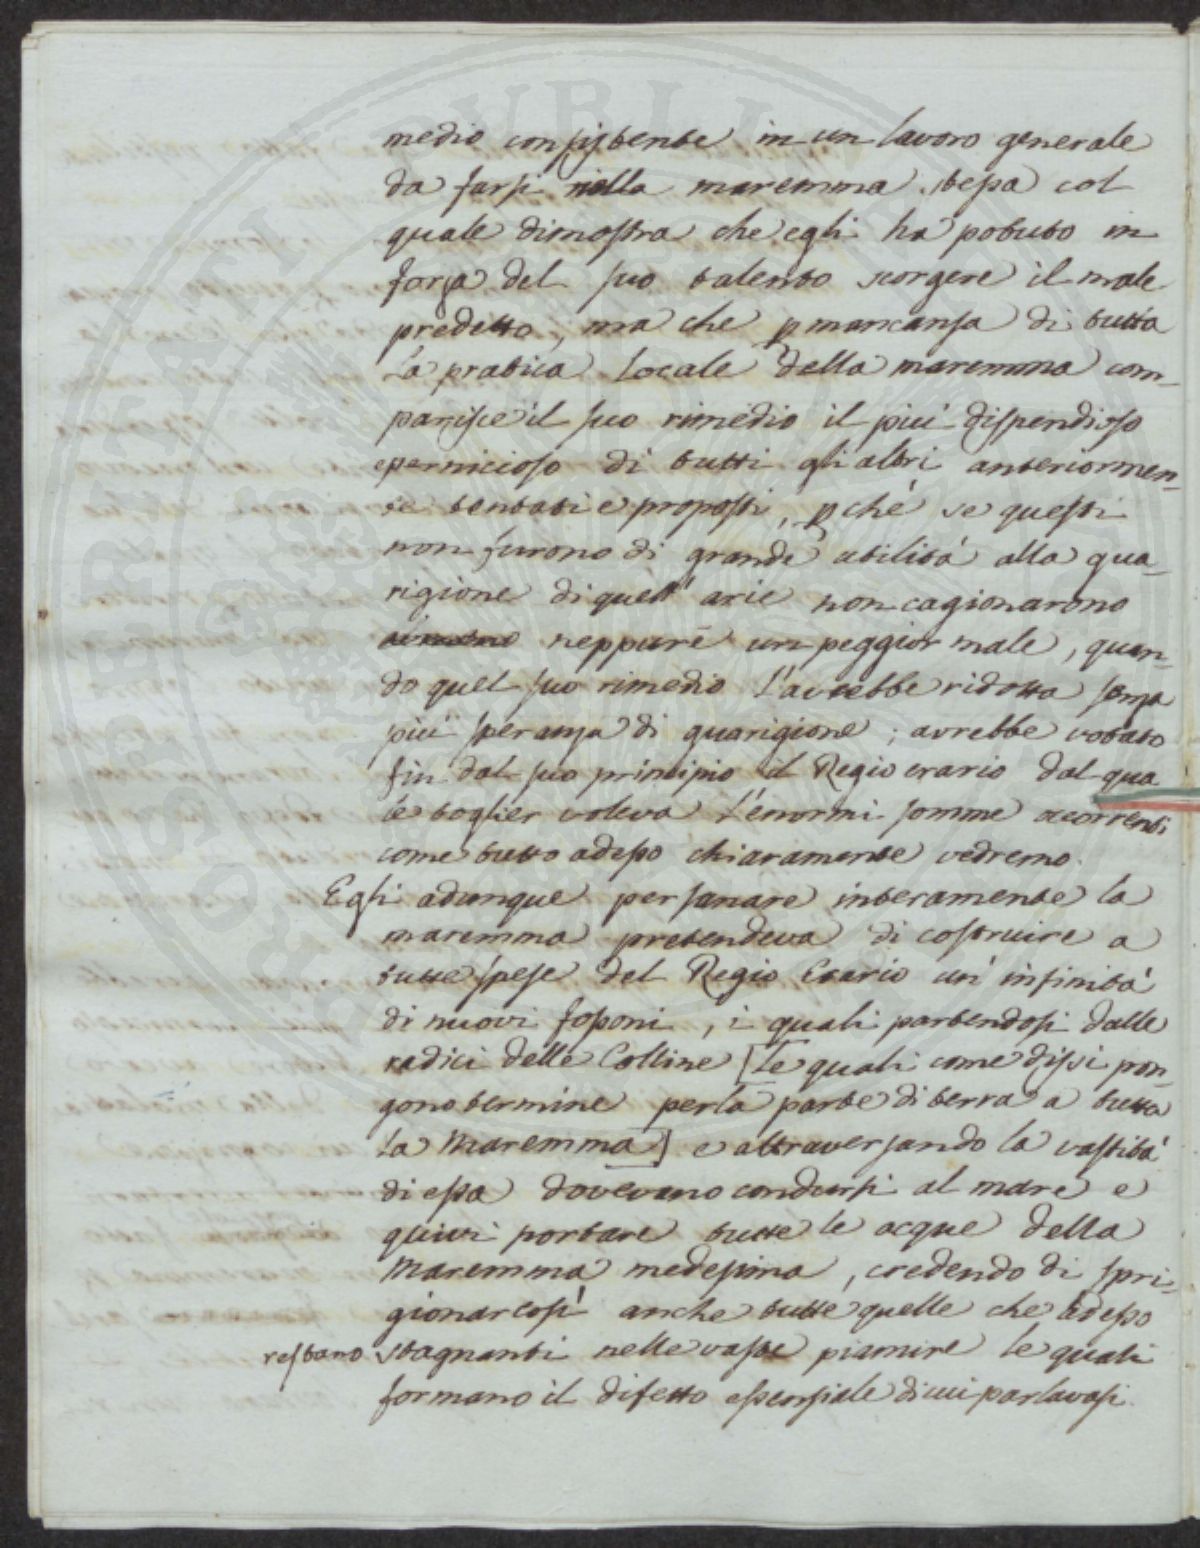 medio consistente in un lavoro generale
da farsi nella maremma stessa col
quale dimostra che egli ha potuto in
forza del suo talento scorgere il male
predetto, ma che p mancansa di tutta
la pratica locale della maremma com-
parisce il suo rimedio il piú dispendioso
e pernicioso di tutti gli altri anteriormen-
te tentati e proposti, pché se questi
non furono di grande utilitá alla gua-
rigione di quell' arie non cagionarono
neppure un peggior male, quan-
do quel suo rimedio l'avrebbe ridotta senza
piú speranza di guarigione; avrebbe votato
fin dal suo principio il Regio erario dal qua
le toglier voleva l'enormi somme occorrenti
come tutto adesso chiaramente vedremo.
Egli adunque per sanare interamente la
maremma pretendeva di costruire a
tutte spese del Regio Erario un' infinitá
di nuovi fossoni, i quali partendosi dalle
radici delle Colline [le quali come dissi pon-
gono termine per la parte di terra a tutta
la Maremma] e attraversando la vastitá
di essa dovevano condursi al mare e
quivi portare tutte le acque della
Maremma medesima, credendo di spri-
gionar cosí anche tutte quelle che adesso
restano stagnanti nelle vaste pianure le quali
formano il difetto essensiale di cui parlavasi.
PROSPERITATI PUBLICAE